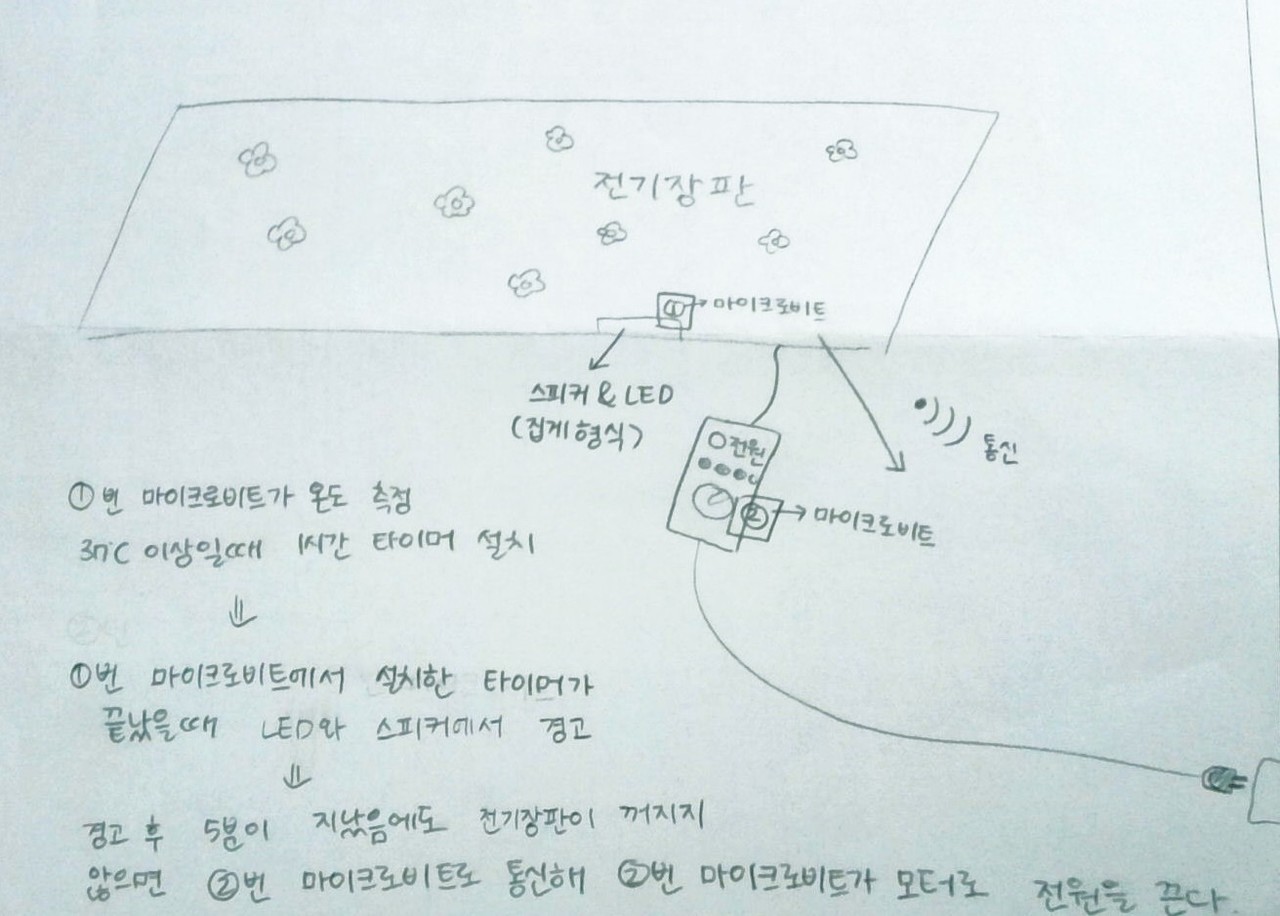 전기장판
① → 마이크로비트
스피커 & LED
(집게형식)
통신
전원
② → 마이크로비트
①번 마이크로비트가 온도 측정
37℃ 이상일때 1시간 타이머 설치
⇓
①번 마이크로비트에서 설치한 타이머가
끝났을때 LED와 스피커에서 경고
⇓
경고 후 5분이 지났음에도 전기장판이 꺼지지
않으면 ②번 마이크로비트로 통신해 ②번 마이크로비트가 모터로 전원을 끈다.